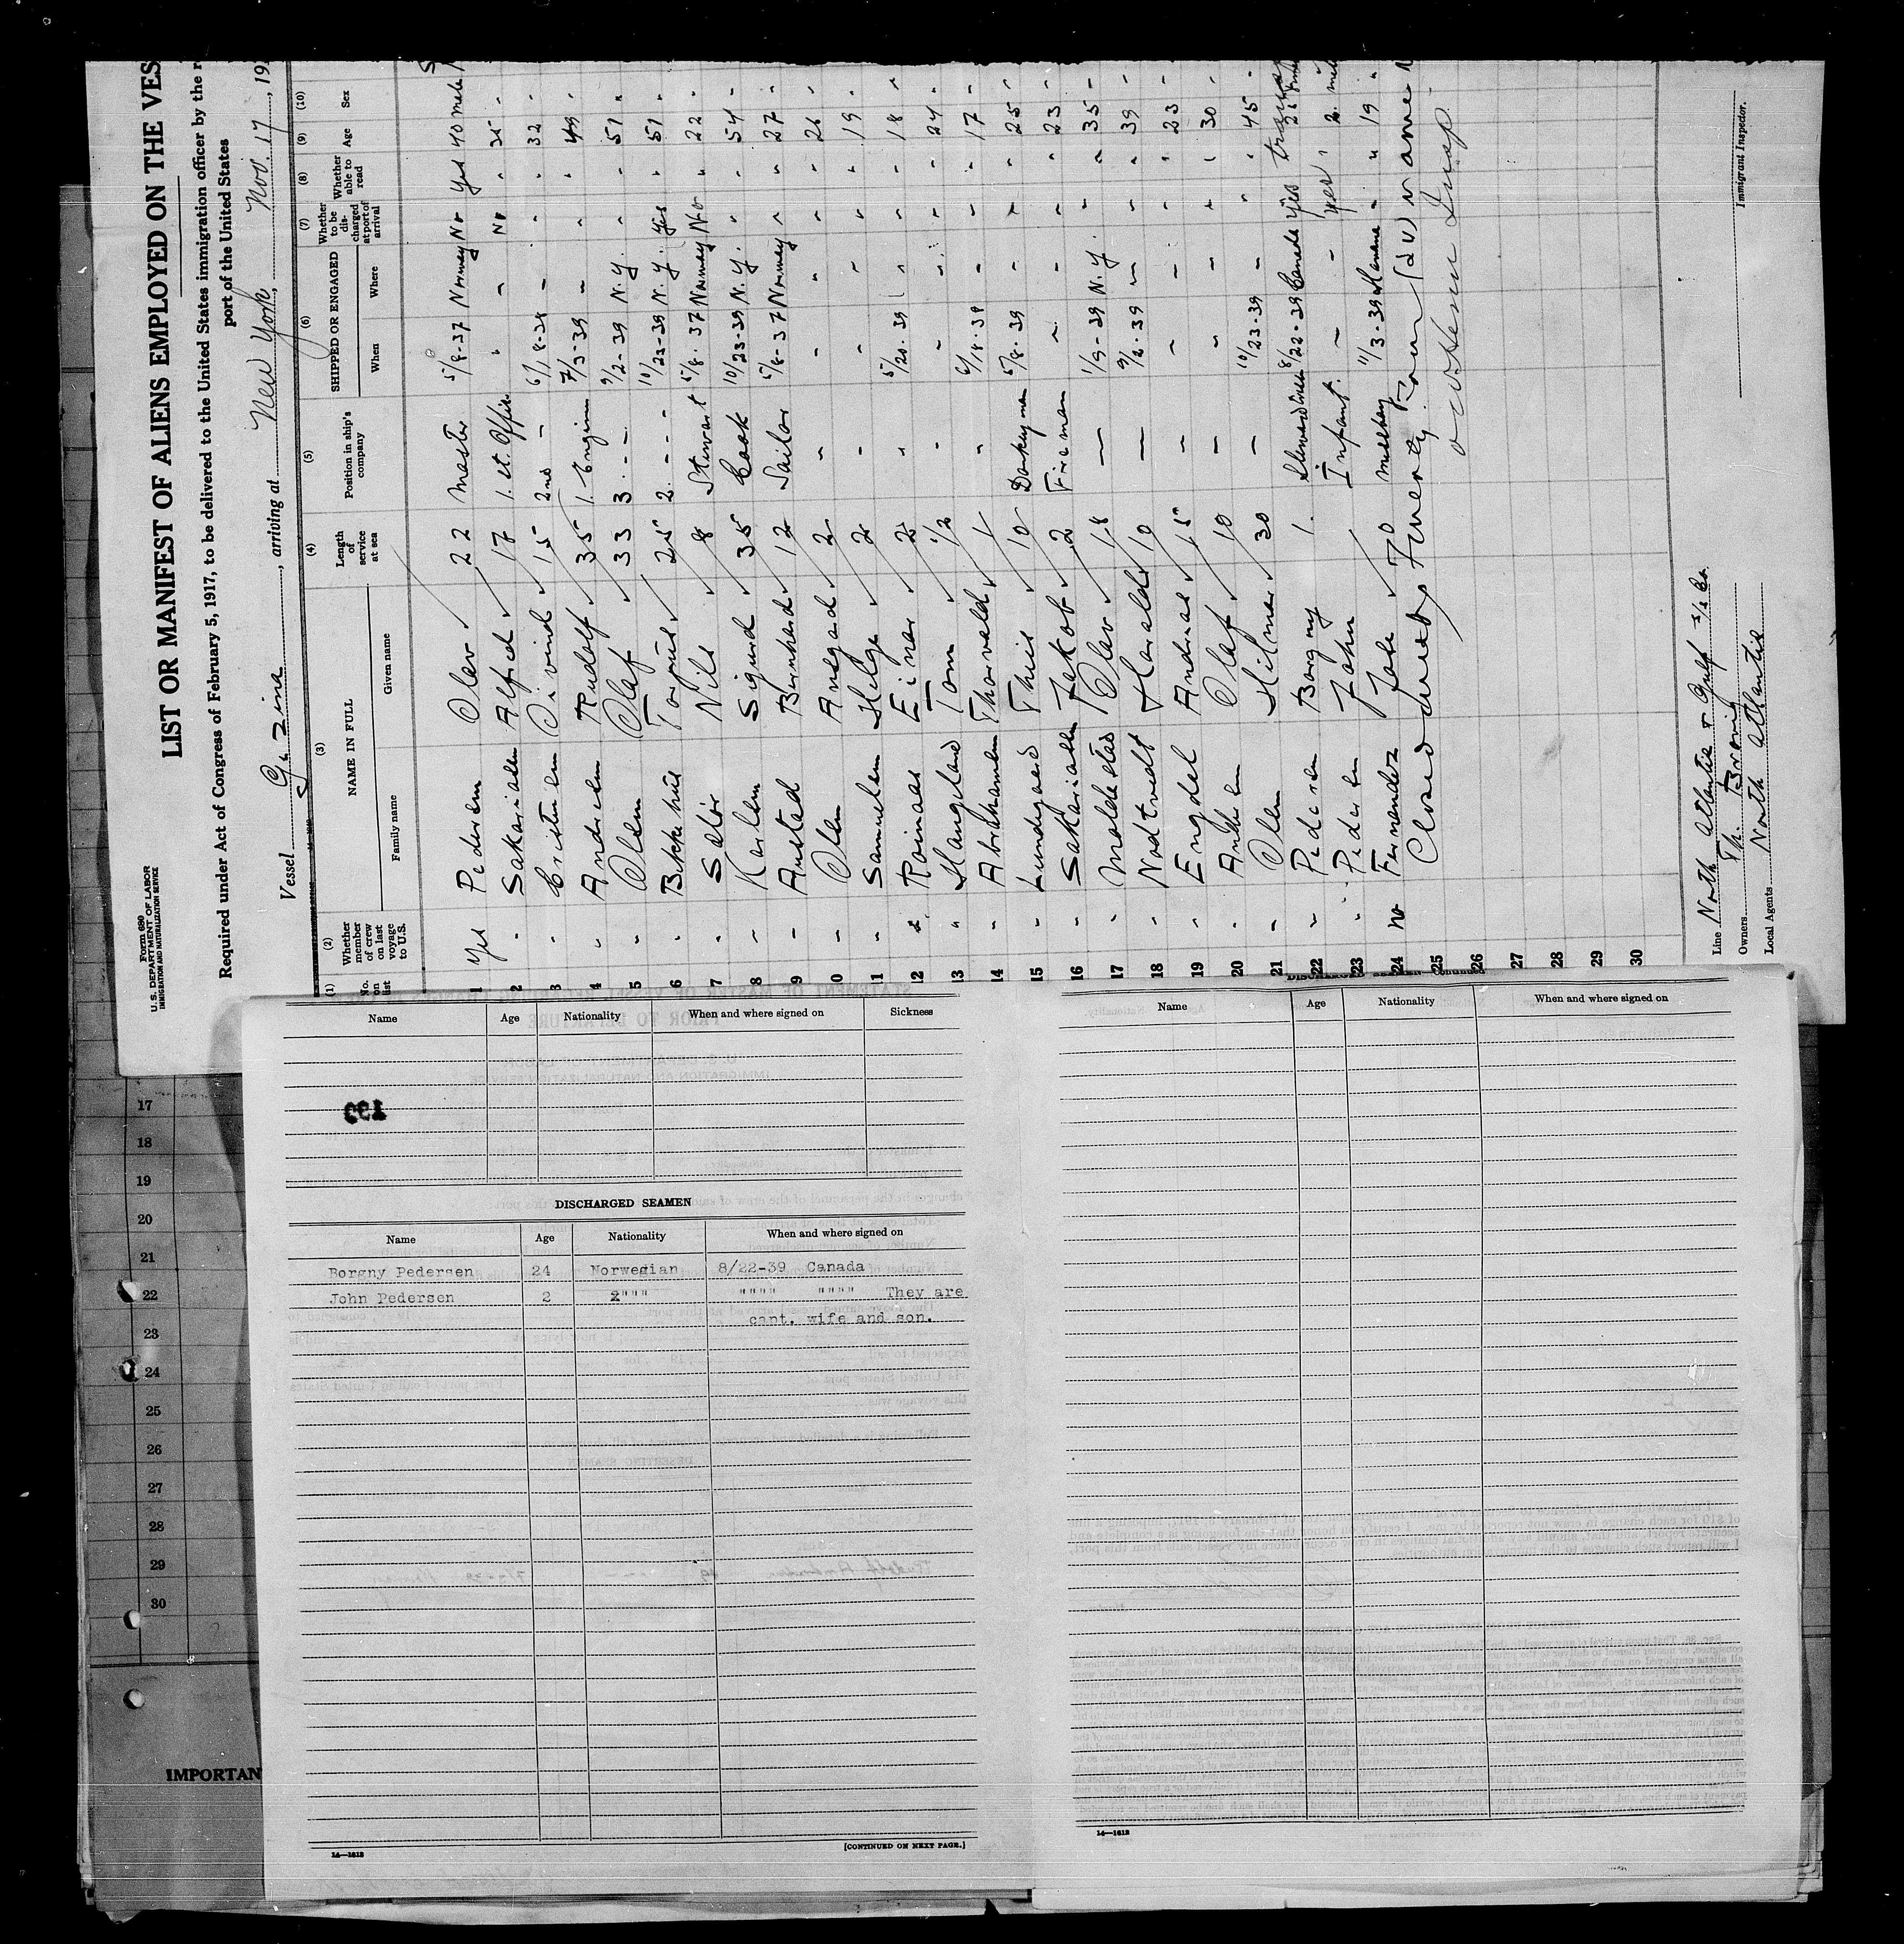 Form 680
U. S. DEPARTMENT OF LABOR
IMMIGRATION AND NATURALIZATION SERVICE
LIST OR MANIFEST OF ALIENS EMPLOYED ON THE VES
Required under Act of Congress of February 5, 1917, to be delivered to the United States immigration officer by the r
port of the United States
Vessel , arriving at New York, Nov. 17, 19
(1) (2) (3) (4) (5) (6) (7) (8) (9) (10)
No. on list
Whether member of crew on last voyage to U.S.
NAME IN FULL
Family name Given name
Length of service at sea
Position in ship's company
SHIPPED OR ENGAGED
When Where
Whether to be discharged at port of arrival
Whether able to read
Age Sex
1 Yes Pedersen Olav 22 Master 5/8-37 Norway No yes 40 male
2 " Sakariasen Alfred 17 1. st. Officer " - No " 35 -
3 " Eivind 15 2nd - 6/8-38 - - " 32 -
4 " Andresen Rudolf 35 1. Engineer 7/3-39 - " " 49 "
5 " Olsen Olaf 33 3. - - 9/2-39 N.Y. - " 51 "
6 " 25 2. - - - 10/23-39 N.Y. yes " 51 "
7 " Nils 8 Stewart 5/8-37 Norway No " 22 -
8 " Karlsen Sigurd 35 Cook 10/23-39 N.Y. " - 54 -
9 " Austad Bernhard 12 Sailor 5/8-37 Norway " " 27 "
10 " Olsen Ansgard 2 - - " - - 26 "
11 " Samuelsen Helge 2 - - - " " 19 "
12 " Roinaas Einar 2 " 5/20-39 " - - 18 "
13 " Haugeland Tom 1/2 - - - - - 24 -
14 " Abrahamsen Thorvald 1 " 6/18-38 - - - 17 -
15 " Lundgaard Thies 10 Donkeyman 5/8-39 - " " 25 -
16 " Sakariasen Jakob 2 Fireman - - " " 23 -
17 " Olav 18 - 1/9-39 N.Y. - " 35 -
18 " Nodtvedt Harald 10 - 9/2-39 - - " 39 -
19 " Engdal Andreas 15 - - - - " 23 -
20 " Olaf 10 - - - " " 30 "
21 " Olsen Hilmar 30 - 10/23-39 - " " 45 -
22 " Pedersen Borgny 1. 8/22-39 Canada yes
23 " Pedersen John Infant. - - yes " 2. male
24 no Fernandez Jose 70 messboy 11/3-39 Havana " " 19 "
25 Closed Twenty Four
26
27
28
29
30
Line North Atlantic & Gulf S/S Co.
Owners Th. Brovig
Local Agents North Atlantic
Immigrant Inspector.
Name Age Nationality When and where signed on Sickness
DISCHARGED SEAMEN
Name Age Nationality When and where signed on
Borgny Pedersen 24 Norwegian 8/22-39 Canada
John Pedersen 2 """" """" """" They are
capt. wife and son.
[CONTINUED ON NEXT PAGE.]
14—1613
Name Age Nationality When and where signed on
14—1613
17
18
19
20
21
22
23
24
25
26
27
28
29
30
IMPORTAN